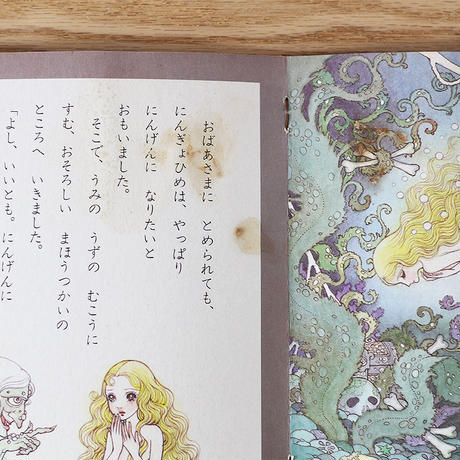 おばあさまに　とめられても、
にんぎょひめは、やっぱり
にんげんに　なりたいと
おもいました。
そこで、うみの　うずの　むこうに
すむ、おそろしい　まほうつかいの
ところへ　いきました。
「よし、いいとも。にんげんに